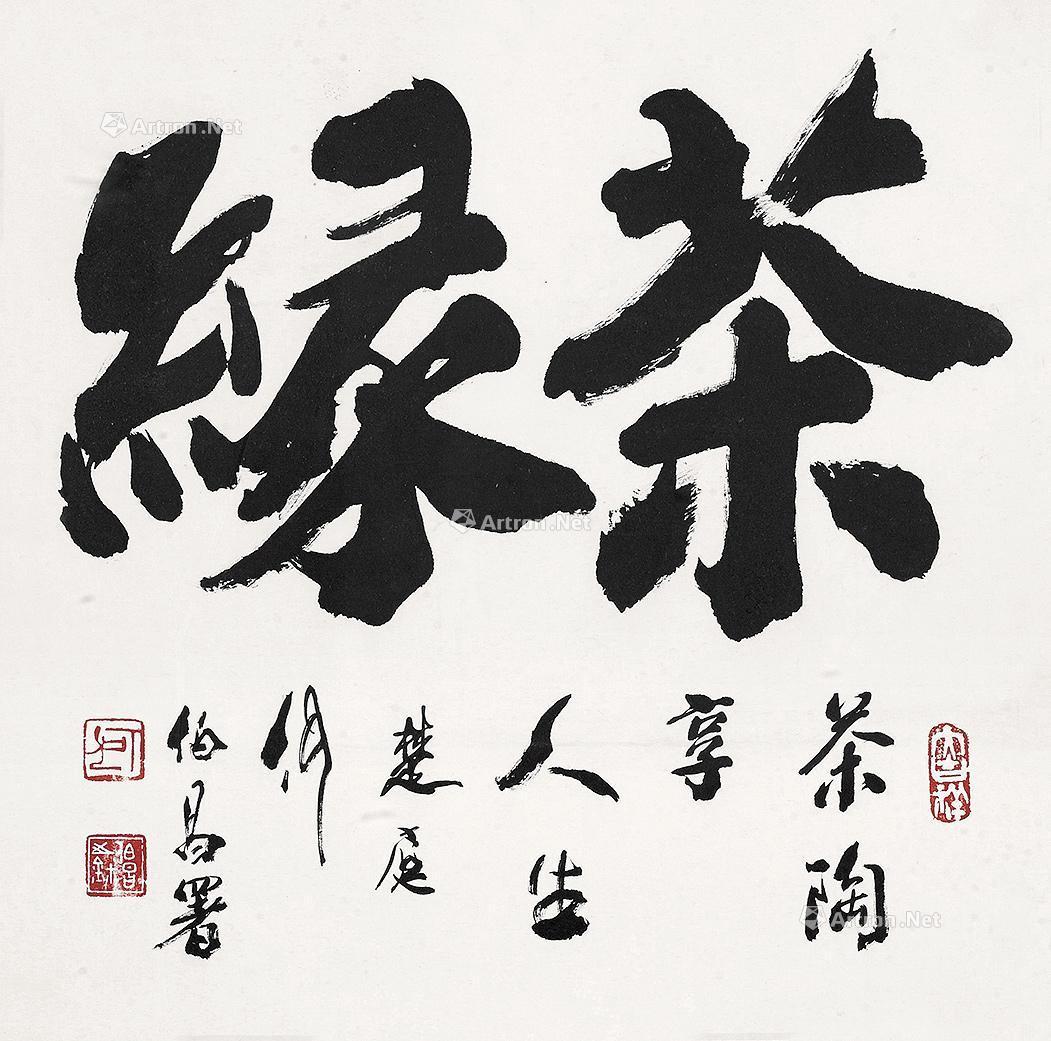 茶緣
茶陶
享
人生
楚庭
何
伯昌署
大吉祥
何
Artron.Net
Artron.Net
Artron.Net